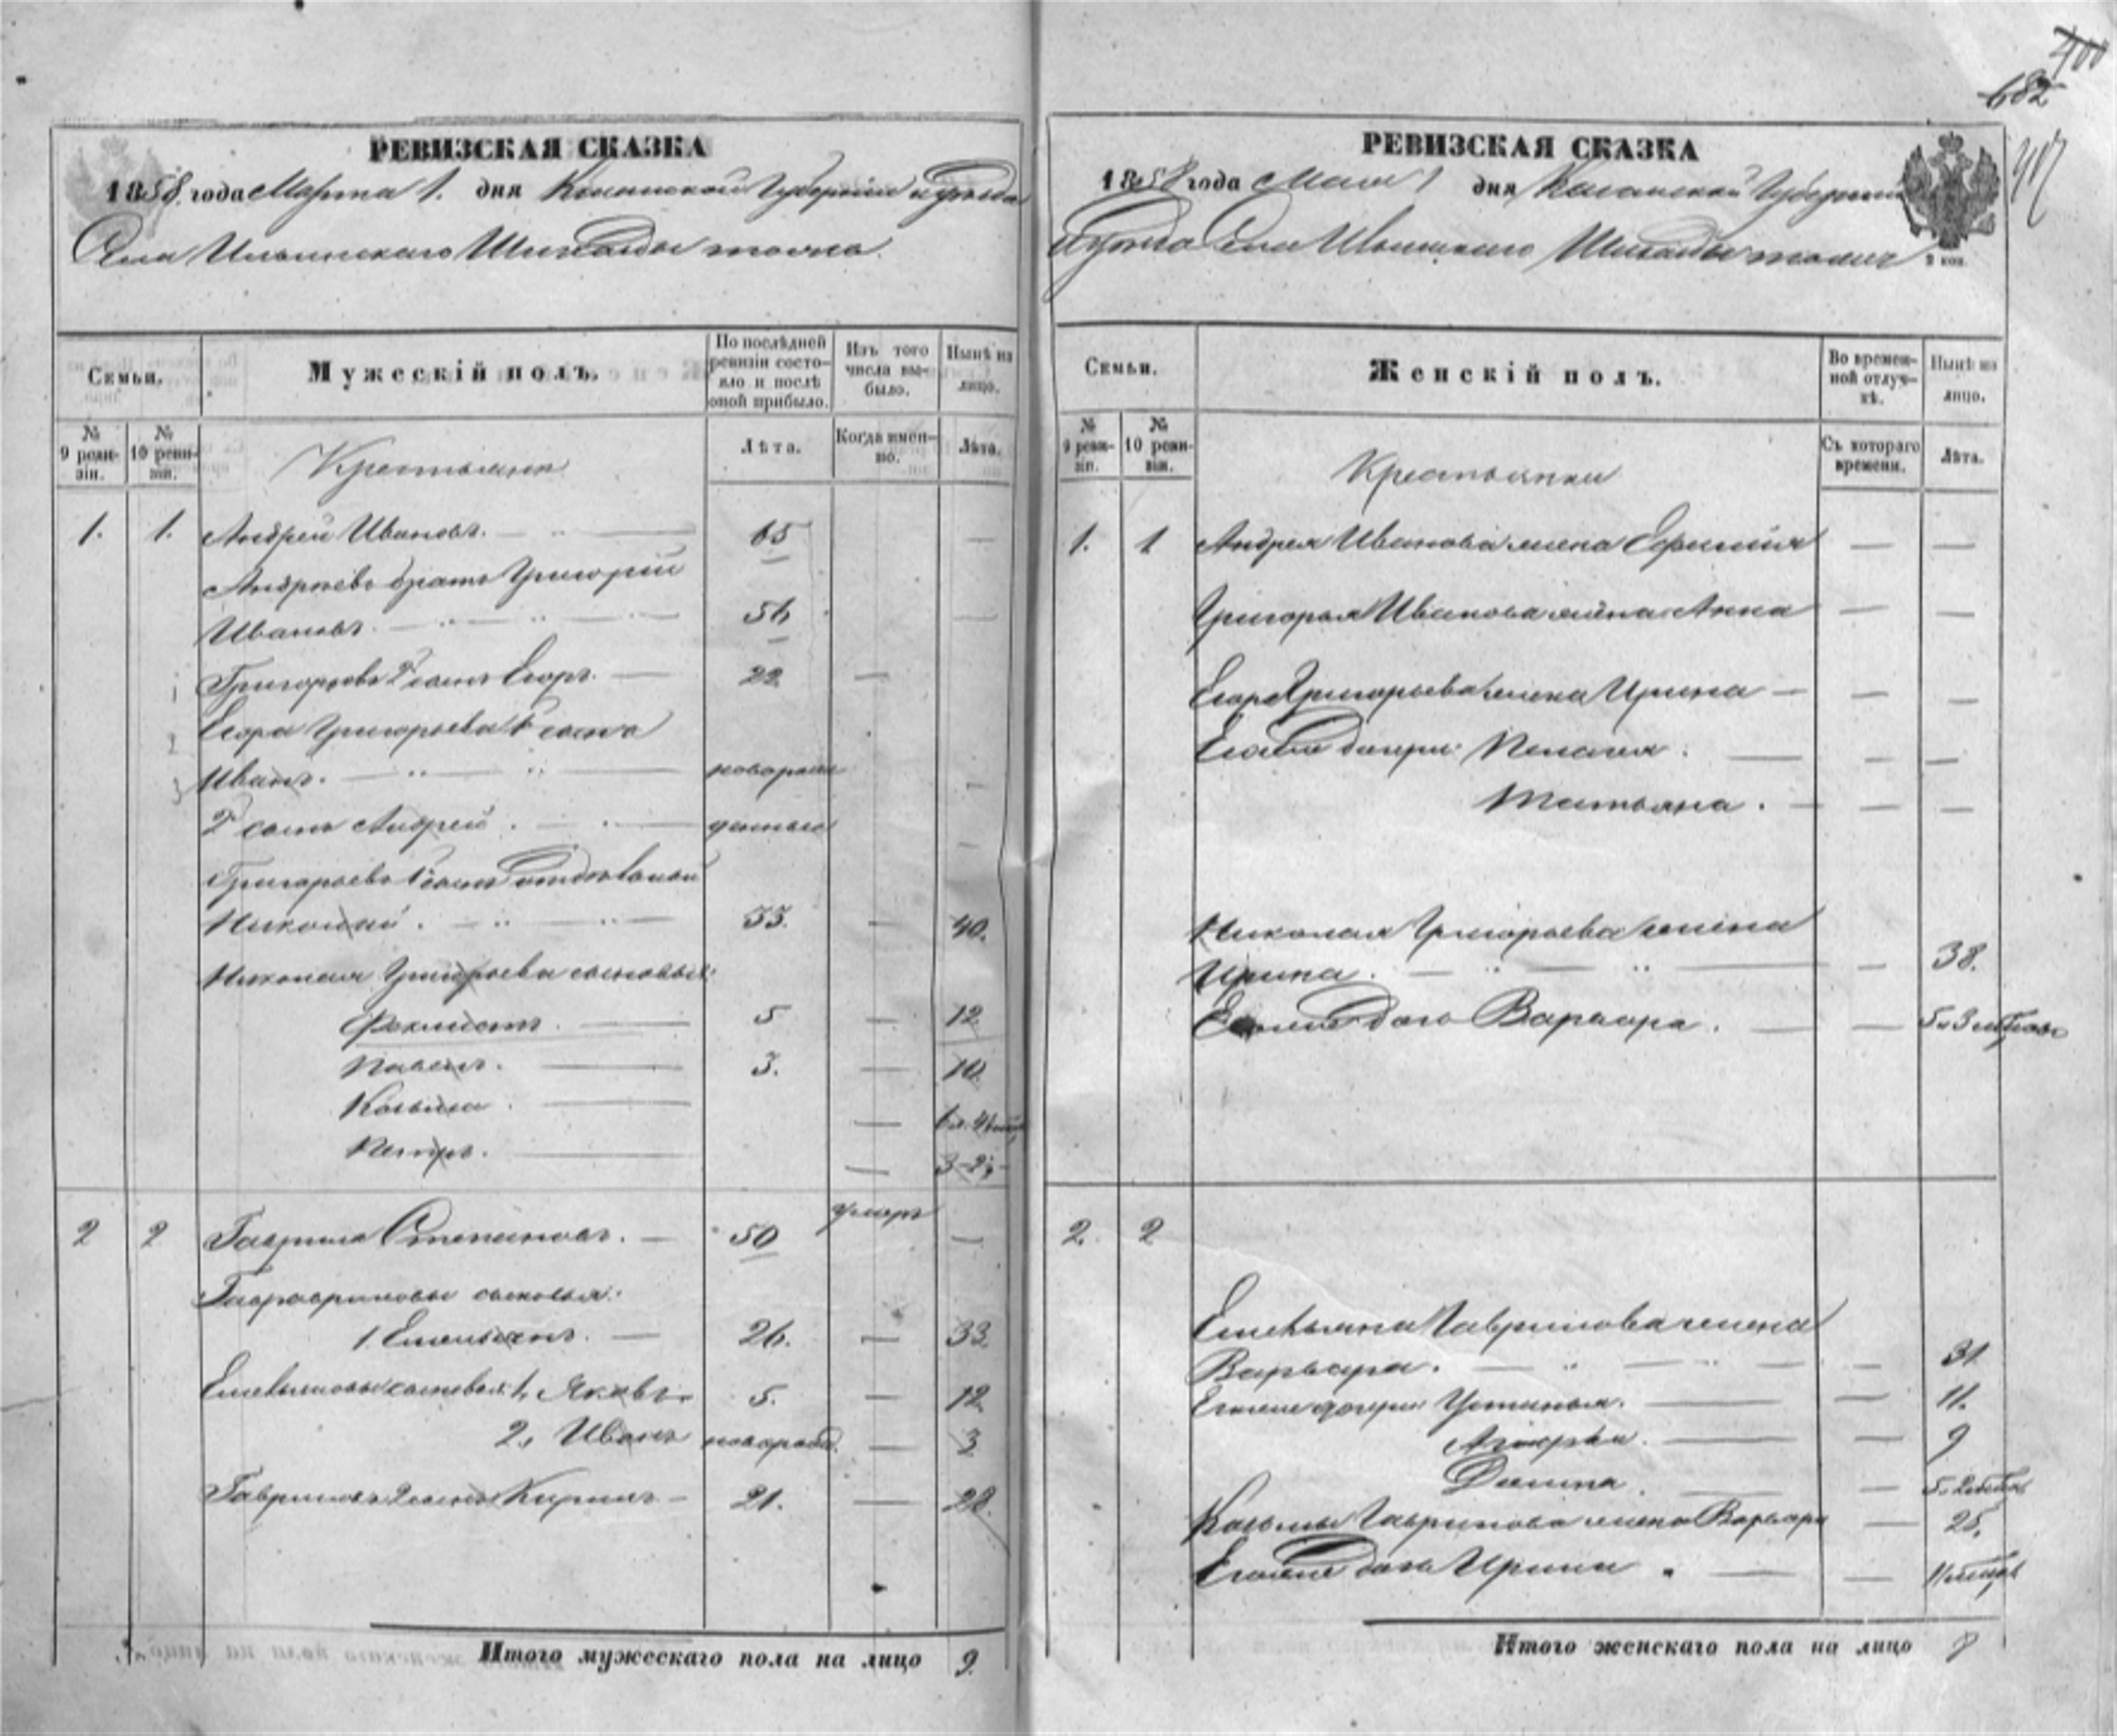 400
682
417
РЕВИЗСКАЯ СКАЗКА
1858 года Марта 1. дня Казанской Губерніи и уѣзда
Села Ильинскаго Шигалды тожъ
Семьи.
Мужескій полъ.
По послѣдней ревизіи состояло и послѣ оной прибыло.
Изъ того числа выбыло.
Нынѣ на лицо.
№ 9 ревизіи.
№ 10 ревизіи.
Крестьяне
Лѣта.
Когда именно.
Лѣта.
1. 1. Андрей Ивановъ. 65 —
Андреевъ братъ Григорій
Ивановъ. 56 —
Григорьевъ 2й сынъ Егоръ. 22 —
Егора Григорьева 1й сынъ
Иванъ. новорож —
2й сынъ Андрей. денные
Григорьевъ 1й сынъ
Николай. 33. — 40.
Николая Григорьева сыновья:
Феклистъ. 5 — 12
Павелъ. 3. — 10.
Козьма. — 6 л. 4
Петръ. — 3
2 2 Гаврила Степановъ. 50 умеръ —
Гавриловы сыновья:
1. Емельянъ. 26. — 33.
Емельяновы сыновья: 1, Яковъ. 5. — 12.
2, Иванъ новорожд. — 3
Гавриловъ 2 сынъ Кирилъ 21. — 28.
Итого мужескаго пола на лицо 9.
РЕВИЗСКАЯ СКАЗКА
1858 года 1 дня Казанской Губерніи
и уѣзда Села Ильинскаго Шигалды тожъ
2 коп.
Семьи.
Женскій полъ.
Во временной отлучкѣ.
Нынѣ на лицо.
№ 9 ревизіи.
№ 10 ревизіи.
Крестьянки
Съ котораго времени.
Лѣта.
1. 1 Андрея Иванова жена Ефимия — —
Григорья Иванова жена Анна — —
Егора Григорьева жена Ирина — —
Егоовы дочери: Пелагея. — —
Татьяна. — —
Николая Григорьева жена
Ирина. — 38.
дочь Варвара. — 5 и 3
2. 2
Емельяна Гаврилова жена
Варвара. — 31
Егоже дочери Устинья. — 11.
— 9
— 5
Козьмы Гаврилова жена Варвара — 25.
Егоже дочь Ирина — 11
Итого женскаго пола на лицо 8